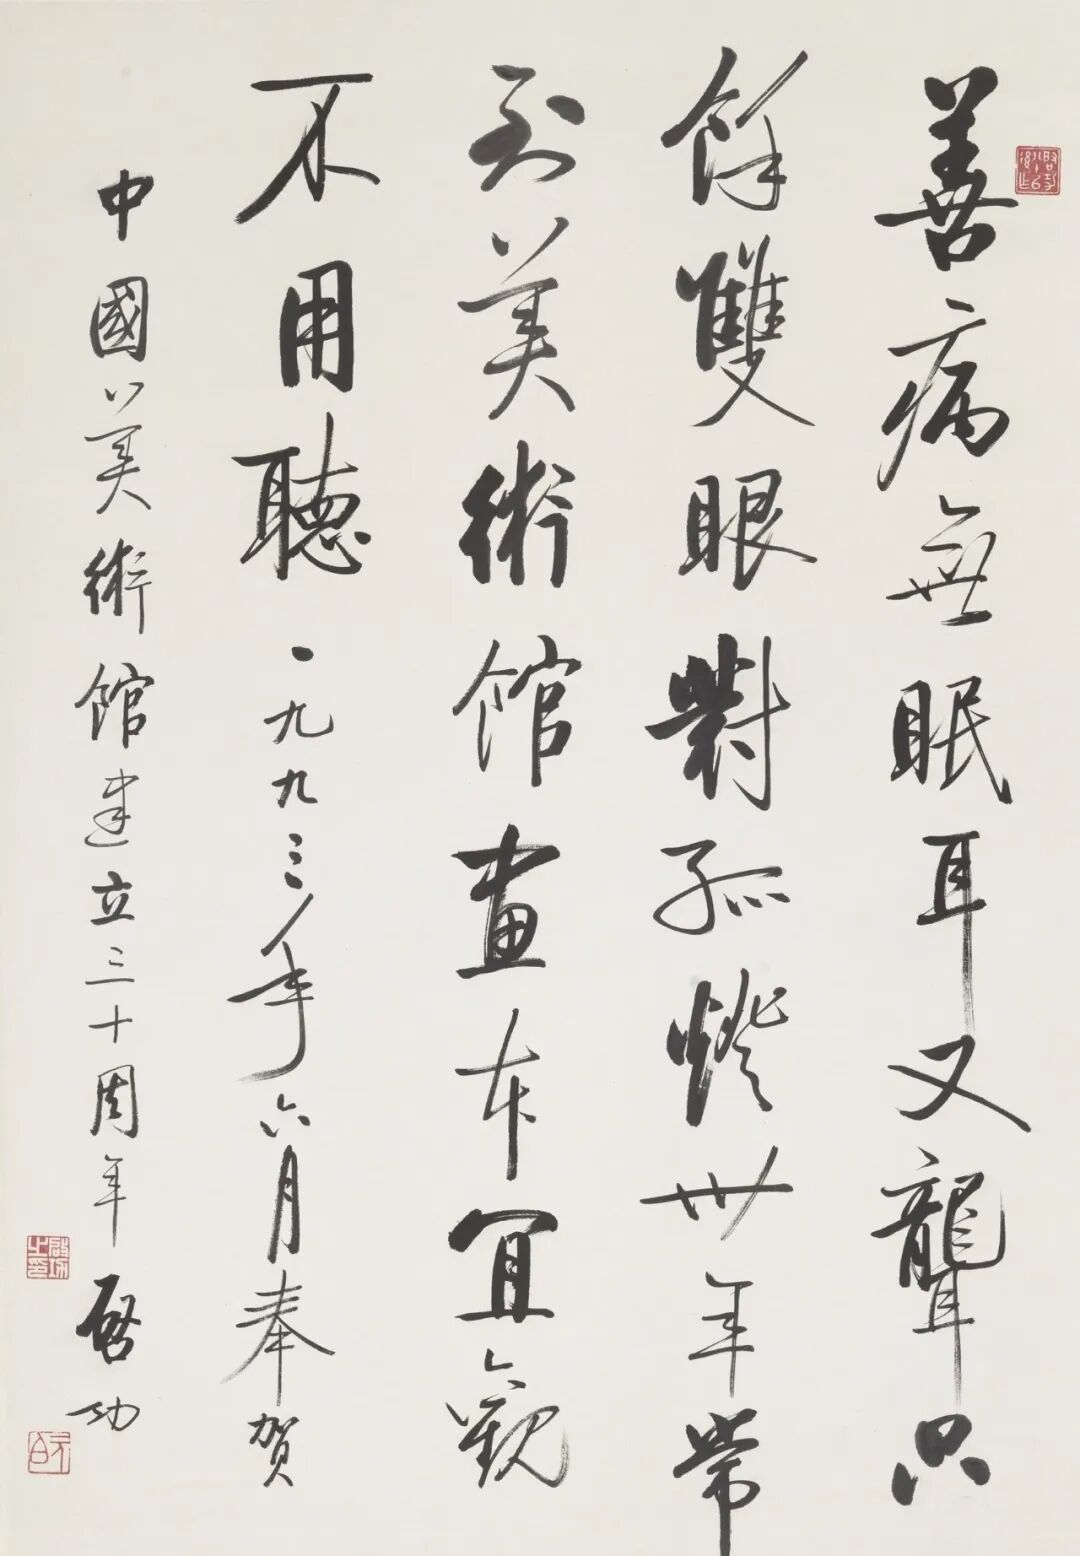 善病無眠耳又聾只
餘雙眼對孤燈卅年常
到美術館畫本宜觀
不用聽 一九九三年六月奉賀
中國美術館建立三十周年 启功